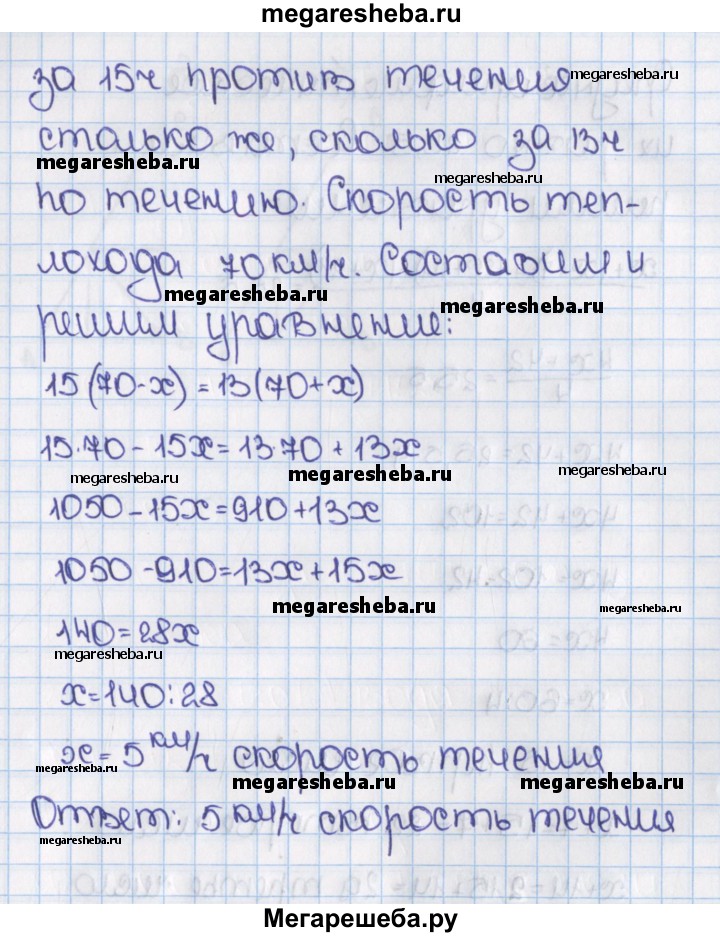 megaresheba.ru
за 15ч против течения megaresheba.ru
столько же, сколько за 13ч
megaresheba.ru megaresheba.ru
по течению. Скорость теп-
лохода 70 км/ч. Составим и
megaresheba.ru megaresheba.ru
решим уравнение:
15(70-x)=13(70+x)
15·70-15x=13·70+13x
megaresheba.ru megaresheba.ru megaresheba.ru
1050-15x=910+13x
1050-910=13x+15x
megaresheba.ru megaresheba.ru
140=28x
megaresheba.ru
x=140:28
x=5 км/ч скорость течения
megaresheba.ru megaresheba.ru megaresheba.ru
Ответ: 5 км/ч скорость течения
megaresheba.ru
Мегарешеба.ру